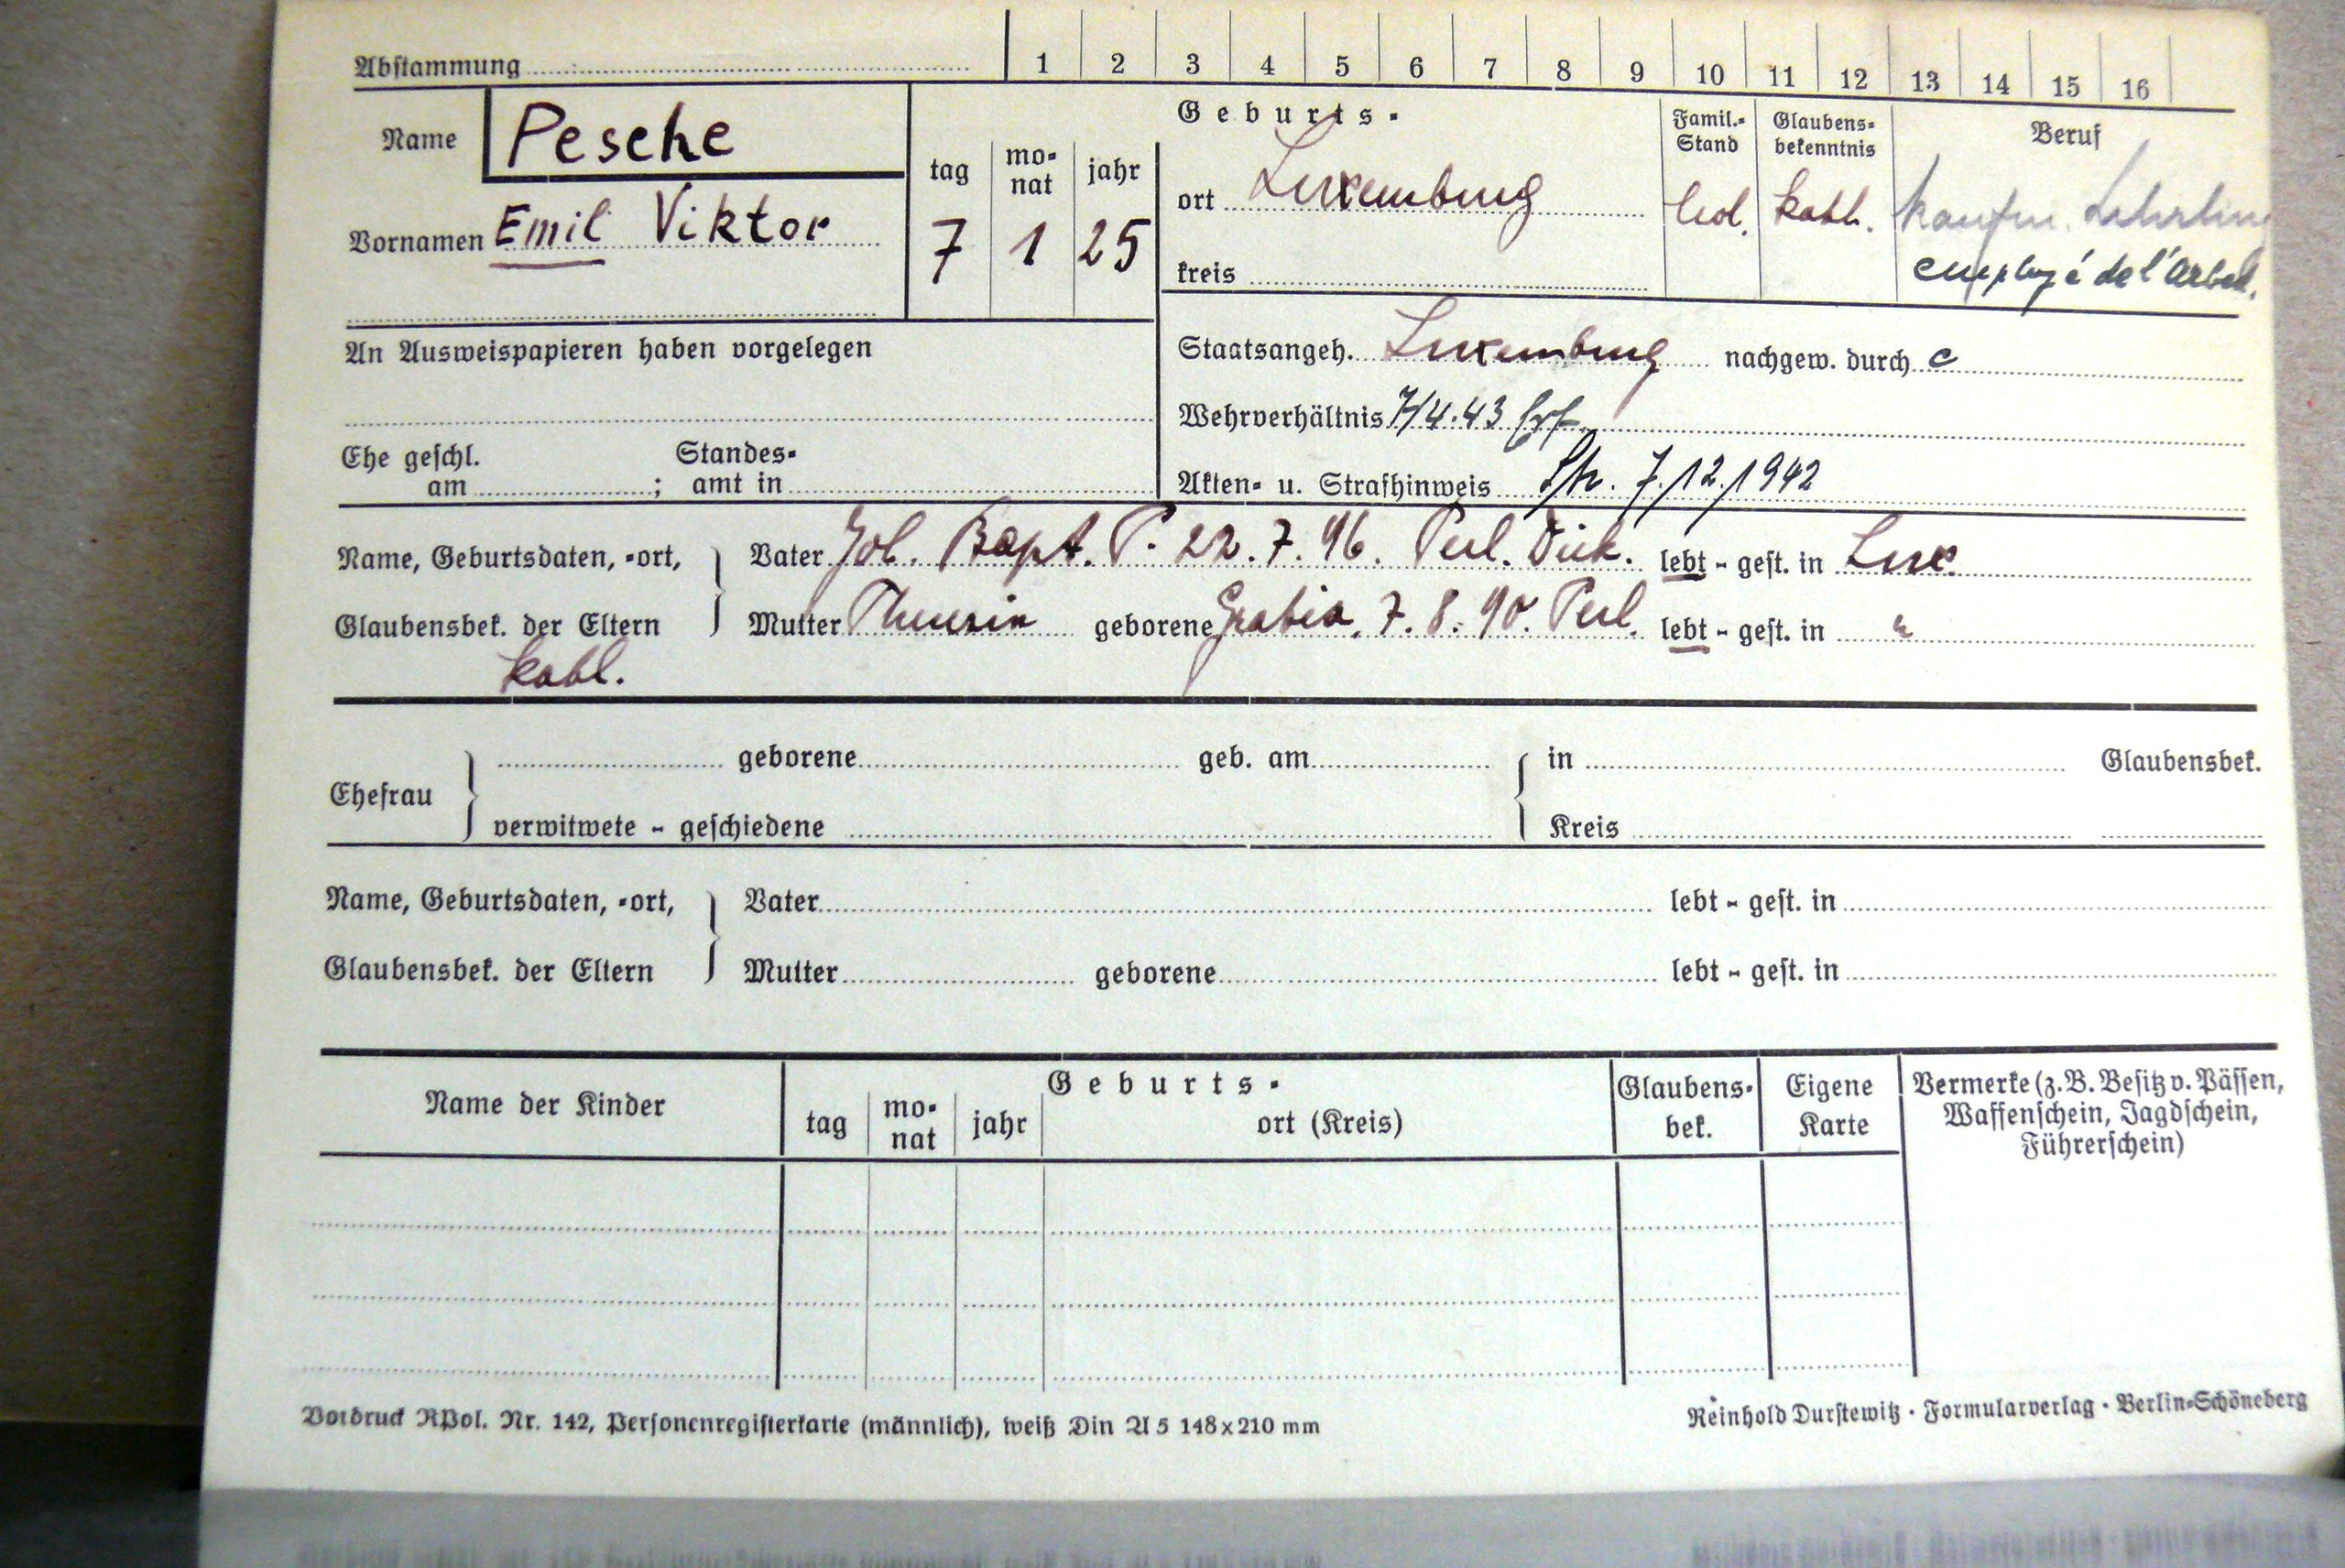 Abstammung 1 2 3 4 5 6 7 8 9 10 11 12 13 14 15 16
Name Pesche
Vornamen Emil Viktor
tag monat jahr
7 1 25
Geburts-
ort Luxemburg
kreis
Famil.-Stand
led.
Glaubens-bekenntnis
kath.
Beruf
kaufm. Lehrling
employé de l'Arbed.
An Ausweispapieren haben vorgelegen
Staatsangeh. Luxemburg nachgew. durch c
Wehrverhältnis 7/4.43 Erf.
Ehe geschl. Standes-
am ; amt in
Akten- u. Strafhinweis 7/12/1942
Name, Geburtsdaten, -ort, Vater Joh. Bapt. P. 22.7.96. Lux.
lebt - gest. in
Glaubensbek. der Eltern Mutter geborene 7.8.90. lebt - gest. in "
kath.
Ehefrau geborene geb. am in Glaubensbek.
verwitwete - geschiedene Kreis
Name, Geburtsdaten, -ort, Vater lebt - gest. in
Glaubensbek. der Eltern Mutter geborene lebt - gest. in
Name der Kinder
Geburts-
tag monat jahr ort (Kreis)
Glaubens-bek.
Eigene Karte
Vermerke (z. B. Besitz v. Pässen,
Waffenschein, Jagdschein,
Führerschein)
Vordruck RPol. Nr. 142, Personenregisterkarte (männlich), weiß Din A 5 148x210 mm
Reinhold Durstewitz · Formularverlag · Berlin-Schöneberg